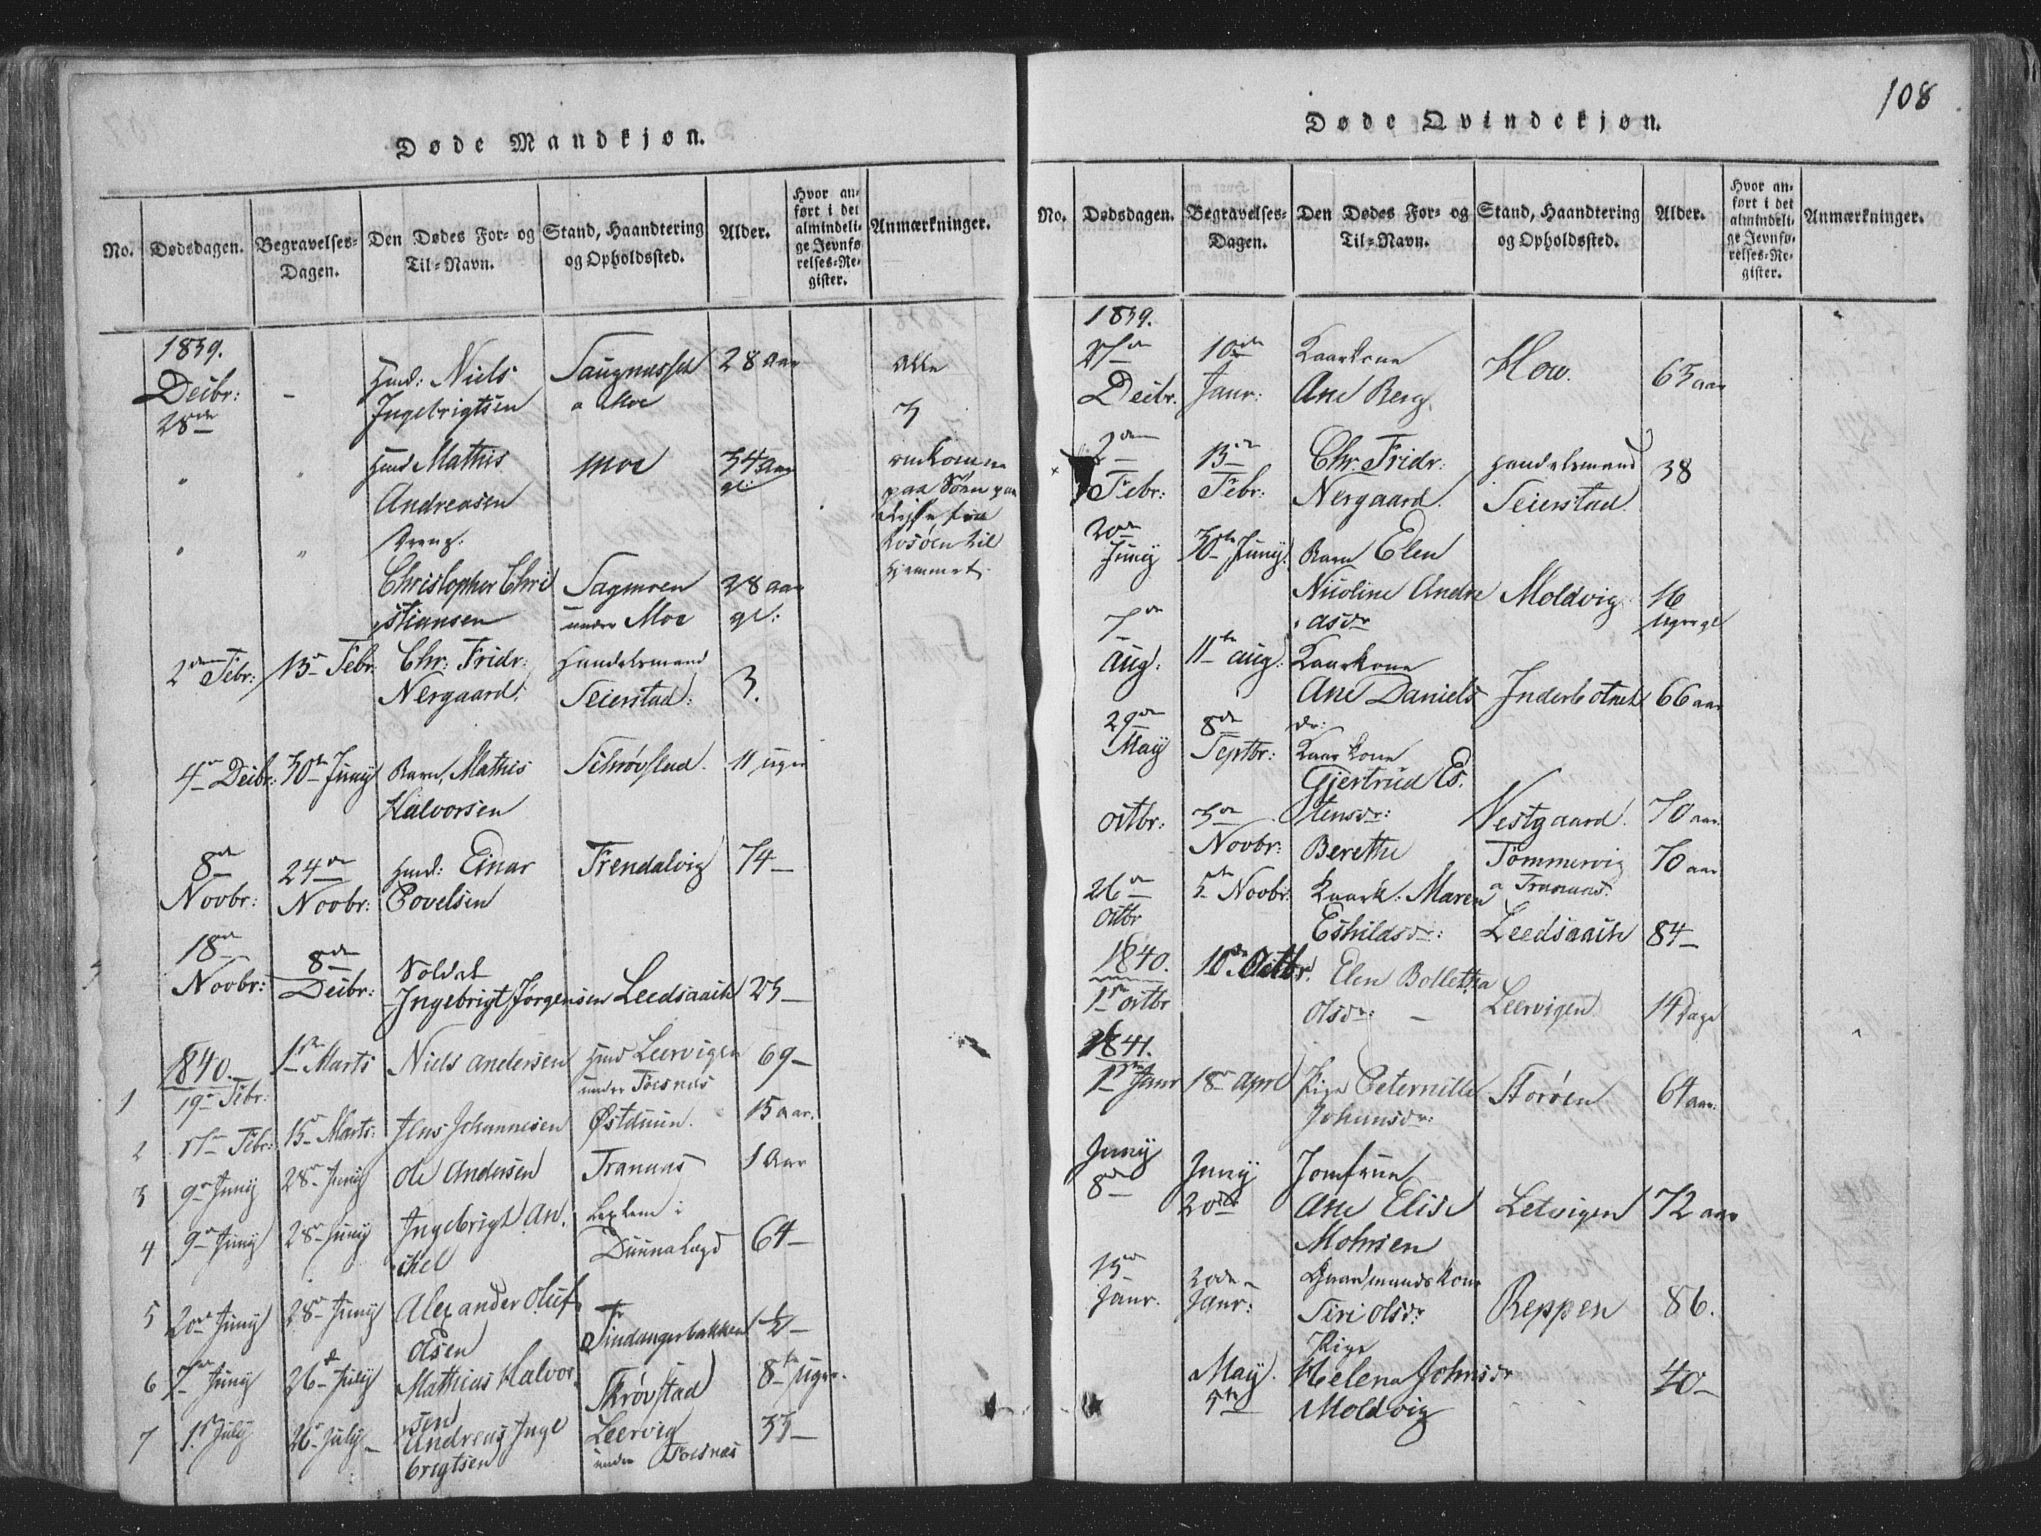 108
Døde Mandkjøn.
No.
Dødsdagen.
Begravelses-
Dagen.
Den Dødes For- og
Til-Navn.
Stand, Haandtering
og Opholdssted.
Alder.
Hvor an-
ført i det
almindeli-
ge Jevnfø-
relses-Re-
gister.
Anmærkninger.
1839.
Decbr: 28de
Niels
Ingebrigtsen
a Moe
28 Aar
Alle
3
omkomne
paa Søen paa
til
Hjemmet.
Mathis
Andreasen
Moe
34 Aar
gl:
Dreng.
Christopher Chri
stiansen
Sagmoen
under Moe
28 aar
gl:
2den Febr: 13de Febr: Chr: Fridr:
Nergaard.
Handelsmand
Seierstad:
3.
4de Decbr: 30te Juny Barn, Mathis
Halvorsen
Schrøvstad. 11 uger
8de
Novbr:
24de
Novbr:
Einar
Povelsen
Trendalvig 74 –
18de
Novbr:
8de
Decbr:
Soldat
Ingebrigt Jørgensen Leedsaaich 23 –
1840.
1 19de Febr: 1ste Marts Niels Andersen Leervigen
under Foesnæs
69 –
2 Febr: 15de Marts: Jens Johannesen Østduun. 15 aar.
3 9de Juny 28de Juny Ole Andersen Tranaas 1 Aar
4 9de Juny 28de Juny Ingebrigt An.
ichel
i
64 –
5 20de Juny 28de Juny Alexander Oluf
Olsen
Tindangerbakken 1½ –
6 Juny 26de July Mathias Halvor
sen
Skrøvstad 8te uger.
7 1st July 26de July – Andreas Inge
brigtsen
Leervig
under Foesnæs
33 –
Døde Qvindekjøn.
No.
Dødsdagen.
Begravelses-
Dagen.
Den Dødes For- og
Til-Navn.
Stand, Haandtering
og Opholdssted.
Alder.
Hvor an-
ført i det
almindeli-
ge Jevnfø-
relses-Re-
gister.
Anmærkninger.
1839.
Decbr.
10de
Janr:
Kaarkone
Ane Berg.
How.
63 aar
2den
Febr:
13de
Febr:
Chr: Fridr:
Nergaard.
Handelsmand
Seierstad.
38
20de
Juny
30te Juny. Barn Elen
Nicoline Andre
asdr
Moldvig. 16
uger gl
7de
Aug: 11te Aug: Kaarkone
Ane Daniels
dr:
Inderbotnet 66 aar
29de
May
8de
Septbr:
Kaarkone
Gjertrud Es.
tensdr:
Vestgaard. 70 aar.
Octbr: 3de
Novbr:
Berethe
Tømmervig
a Tranaas.
70 aar
26de
Octbr
Novbr: Kaark: Maren
Eskildsdr:
Leedsaaich 84 –
1840.
1ste Octbr
10de Octbr. Elen Bolletha
Olsdr: –
Leervigen. 14 Dage
1841.
1ste Janr 18de April Pige Peternille
Johansdr:
Storøen 64 aar:
Juny
8de
Juny
20de
Jomfrue
Ane Elise
Mohnsen
Letvigen 72 aar
Janr.
Janr:
Gaardmandskone
Siri Olsdr:
Reppen 86.
May.
5te
Pige
Helena Johnsdr
Moldvig
40 –